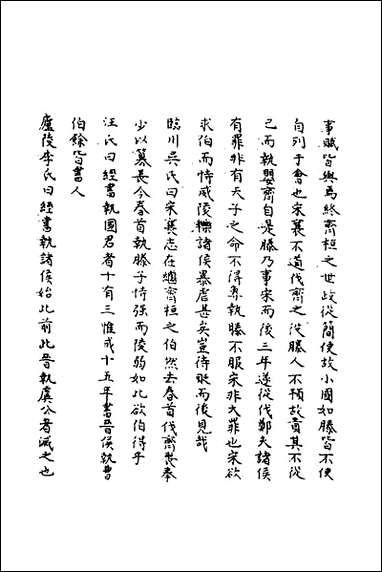 事賦皆與焉終齊桓之世政從簡使故小國如滕皆不使
自列于會也宋襄不道伐齊之役滕人不預故責其不從
己而執嬰齊自是滕乃事宋而後三年遂從伐鄭夫諸侯
有罪非有天子之命不得專執滕不服宋非大罪也宋欲
求伯而恃威陵轢諸侯暴虐甚矣豈待敗而後見哉
臨川吳氏曰宋襄志在繼齊桓之伯然去春首伐齊喪奉
少以簒長今春首執滕子恃强而陵弱如此欲伯得乎
汪氏曰經書執國君者十有三惟成十五年書晉侯執曹
伯餘皆書人
廬陵李氏曰經書執諸侯始此前此晉執虞公者滅之也